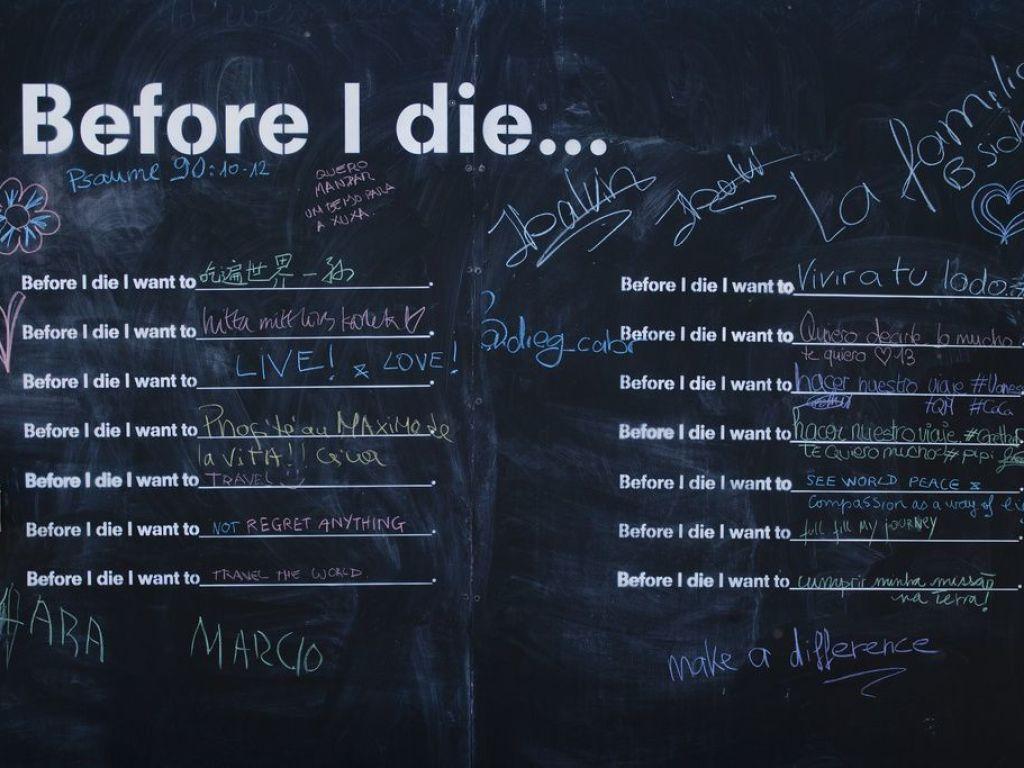 Before I die...
Psaume 90:10-12
QUERO
MANDAR
UM BEIJO PARA
A XUXA
La familia
B side
Before I die I want to 吃遍世界一
Before I die I want to hitta mitt livs
Before I die I want to LIVE! & LOVE!
Before I die I want to MAXIMO de
la ViTA!!
Before I die I want to TRAVEL
Before I die I want to NOT REGRET ANYTHING
Before I die I want to TRAVEL THE WORLD
ARA
MARCIO
@dieg_cabr
Before I die I want to Vivir a tu lado
Before I die I want to Quiero decirte lo mucho
te quiero ♡ 13
Before I die I want to hacer nuestro viaje
#CoCa
Before I die I want to hacer nuestro viaje
TE QUIERO mucho # pipi
Before I die I want to SEE WORLD PEACE &
compassion as a way of
Before I die I want to full fill my journey
Before I die I want to cumprir minha missão
na terra!
make a difference